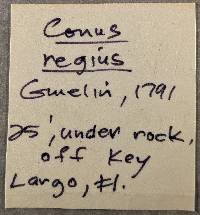 Conus
regius
Gmelin, 1791
25', under rock,
off Key
Largo, Fl.